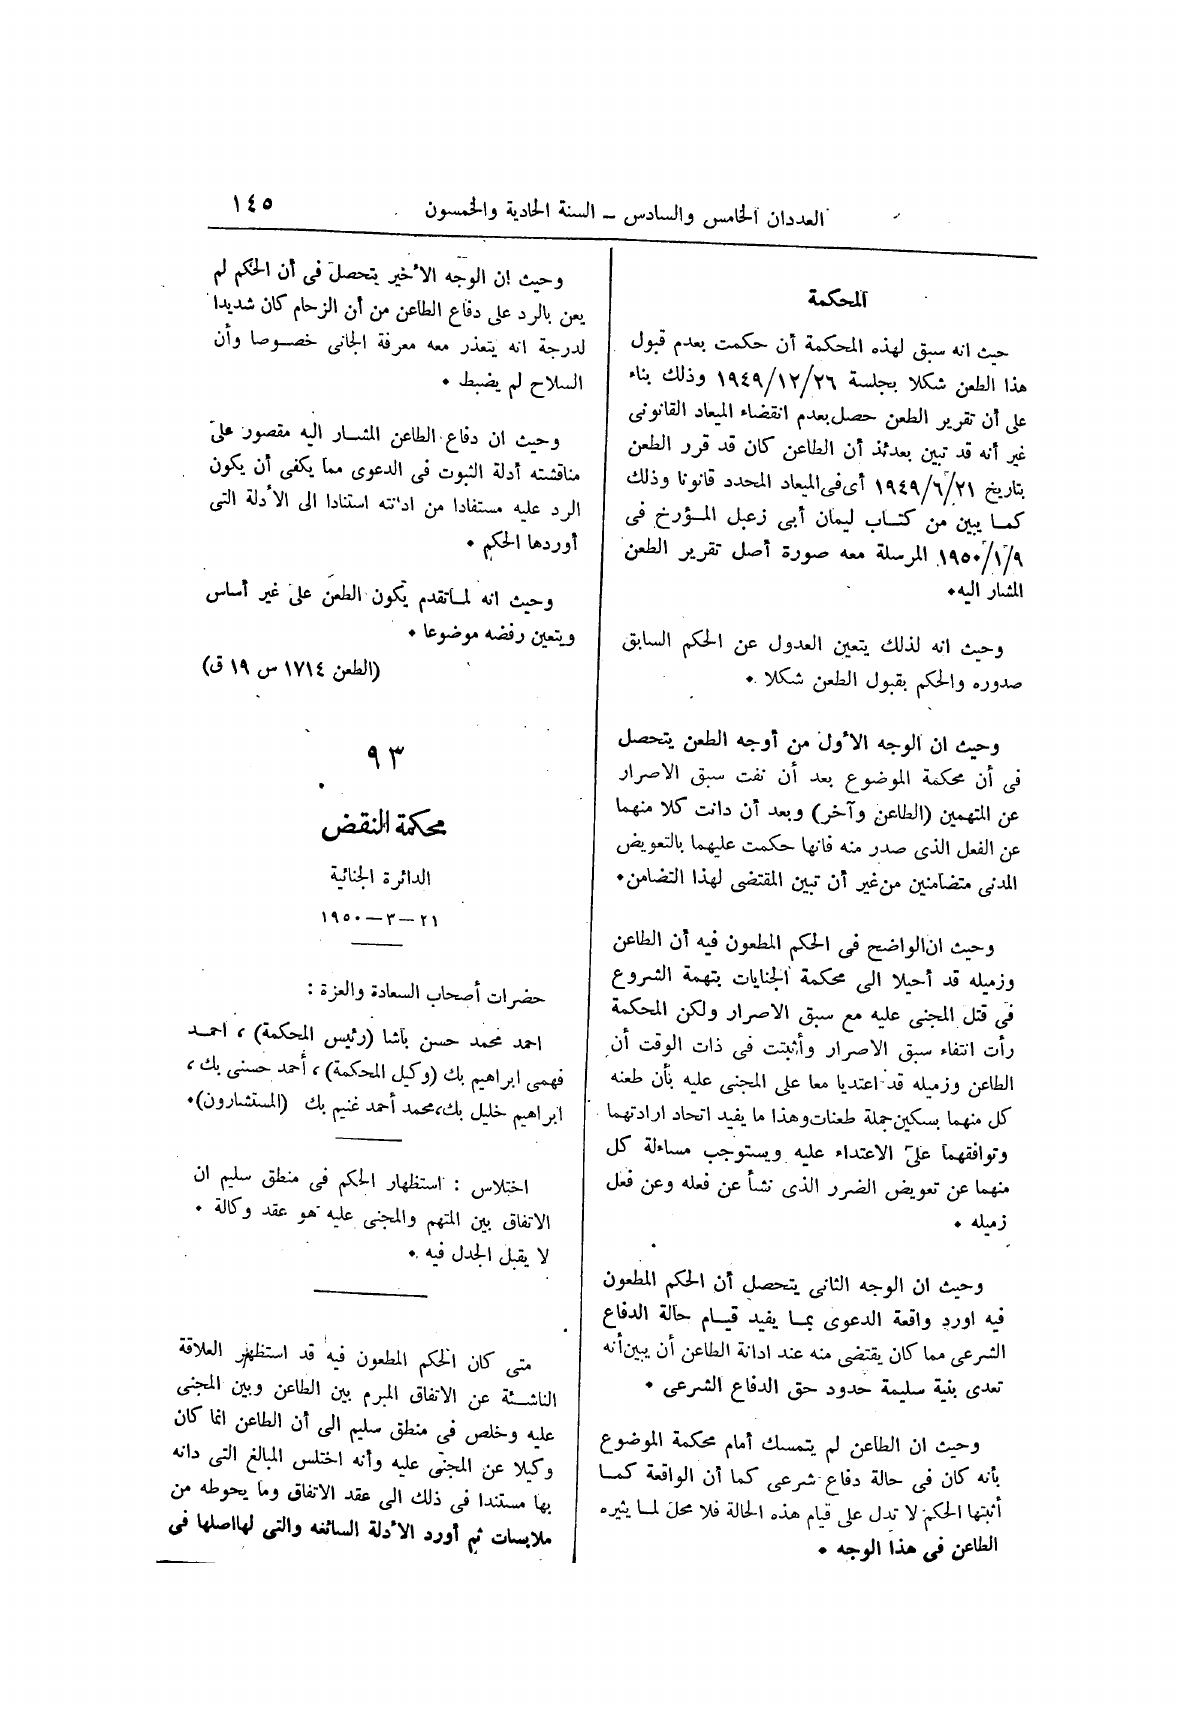 العددان الخامس والسادس – السنة الحادية والخمسون
١٤٥
المحكمة
حيث انه سبق لهذه المحكمة أن حكمت بعدم قبول
هذا الطعن شكلا بجلسة ١٩٤٩/١٢/٢٦ وذلك بناء
على أن تقرير الطعن حصل بعدم انقضاء الميعاد القانونى
غير أنه قد تبين بعدئذ أن الطاعن كان قد قرر الطعن
بتاريخ ١٩٤٩/٦/٢١ أى فى الميعاد المحدد قانونا وذلك
كما يبين من كتاب ليمان أبى زعبل المؤرخ فى
١٩٥٠/١/٩ المرسلة معه صورة أصل تقرير الطعن
المشار اليه٠
وحيث انه لذلك يتعين العدول عن الحكم السابق
صدوره والحكم بقبول الطعن شكلا ٠
وحيث ان الوجه الأول من أوجه الطعن يتحصل
فى أن محكمة الموضوع بعد أن نفت سبق الاصرار
عن المتهمين (الطاعن وآخر) وبعد أن دانت كلا منهما
عن الفعل الذى صدر منه فانها حكمت عليهما بالتعويض
المدنى متضامنين من غير أن تبين المقتضى لهذا التضامن٠
وحيث ان الواضح فى الحكم المطعون فيه أن الطاعن
وزميله قد أحيلا الى محكمة الجنايات بتهمة الشروع
فى قتل المجنى عليه مع سبق الاصرار ولكن المحكمة
رأت انتفاء سبق الاصرار وأثبتت فى ذات الوقت أن
الطاعن وزميله قد اعتديا معا على المجنى عليه بأن طعنه
كل منهما بسكين جملة طعنات وهذا ما يفيد اتحاد ارادتهما
وتوافقهما على الاعتداء عليه ويستوجب مساءلة كل
منهما عن تعويض الضرر الذى نشأ عن فعله وعن فعل
زميله ٠
وحيث ان الوجه الثانى يتحصل أن الحكم المطعون
فيه اورد واقعة الدعوى بما يفيد قيام حالة الدفاع
الشرعى مما كان يقتضى منه عند ادانة الطاعن أن يبين أنه
تعدى بنية سليمة حدود حق الدفاع الشرعى ٠
وحيث ان الطاعن لم يتمسك أمام محكمة الموضوع
بأنه كان فى حالة دفاع شرعى كما أن الواقعة كما
أثبتها الحكم لا تدل على قيام هذه الحالة فلا محل لما يثيره
الطاعن فى هذا الوجه ٠
وحيث ان الوجه الأخير يتحصل فى أن الحكم لم
يعن بالرد على دفاع الطاعن من أن الزحام كان شديدا
لدرجة انه يتعذر معه معرفة الجانى خصوصا وأن
السلاح لم يضبط ٠
وحيث ان دفاع الطاعن المشار اليه مقصور على
مناقشته أدلة الثبوت فى الدعوى مما يكفى أن يكون
الرد عليه مستفادا من ادانته استنادا الى الأدلة التى
أوردها الحكم ٠
وحيث انه لما تقدم يكون الطعن على غير أساس
ويتعين رفضه موضوعا ٠
(الطعن ١٧١٤ س ١٩ ق)
٩٣
محكمة النقض
الدائرة الجنائية
٢١–٣–١٩٥٠
حضرات أصحاب السعادة والعزة :
احمد محمد حسن باشا (رئيس المحكمة) ، احمد
فهمى ابراهيم بك (وكيل المحكمة) ، أحمد حسنى بك ،
ابراهيم خليل بك، محمد أحمد غنيم بك (المستشارون)٠
اختلاس : استظهار الحكم فى منطق سليم ان
الاتفاق بين المتهم والمجنى عليه هو عقد وكالة ٠
لا يقبل الجدل فيه ٠
متى كان الحكم المطعون فيه قد استظهر العلاقة
الناشئة عن الاتفاق المبرم بين الطاعن وبين المجنى
عليه وخلص فى منطق سليم الى أن الطاعن انما كان
وكيلا عن المجنى عليه وأنه اختلس المبالغ التى دانه
بها مستندا فى ذلك الى عقد الاتفاق وما يحوطه من
ملابسات ثم أورد الأدلة السائغه والتى لها اصلها فى